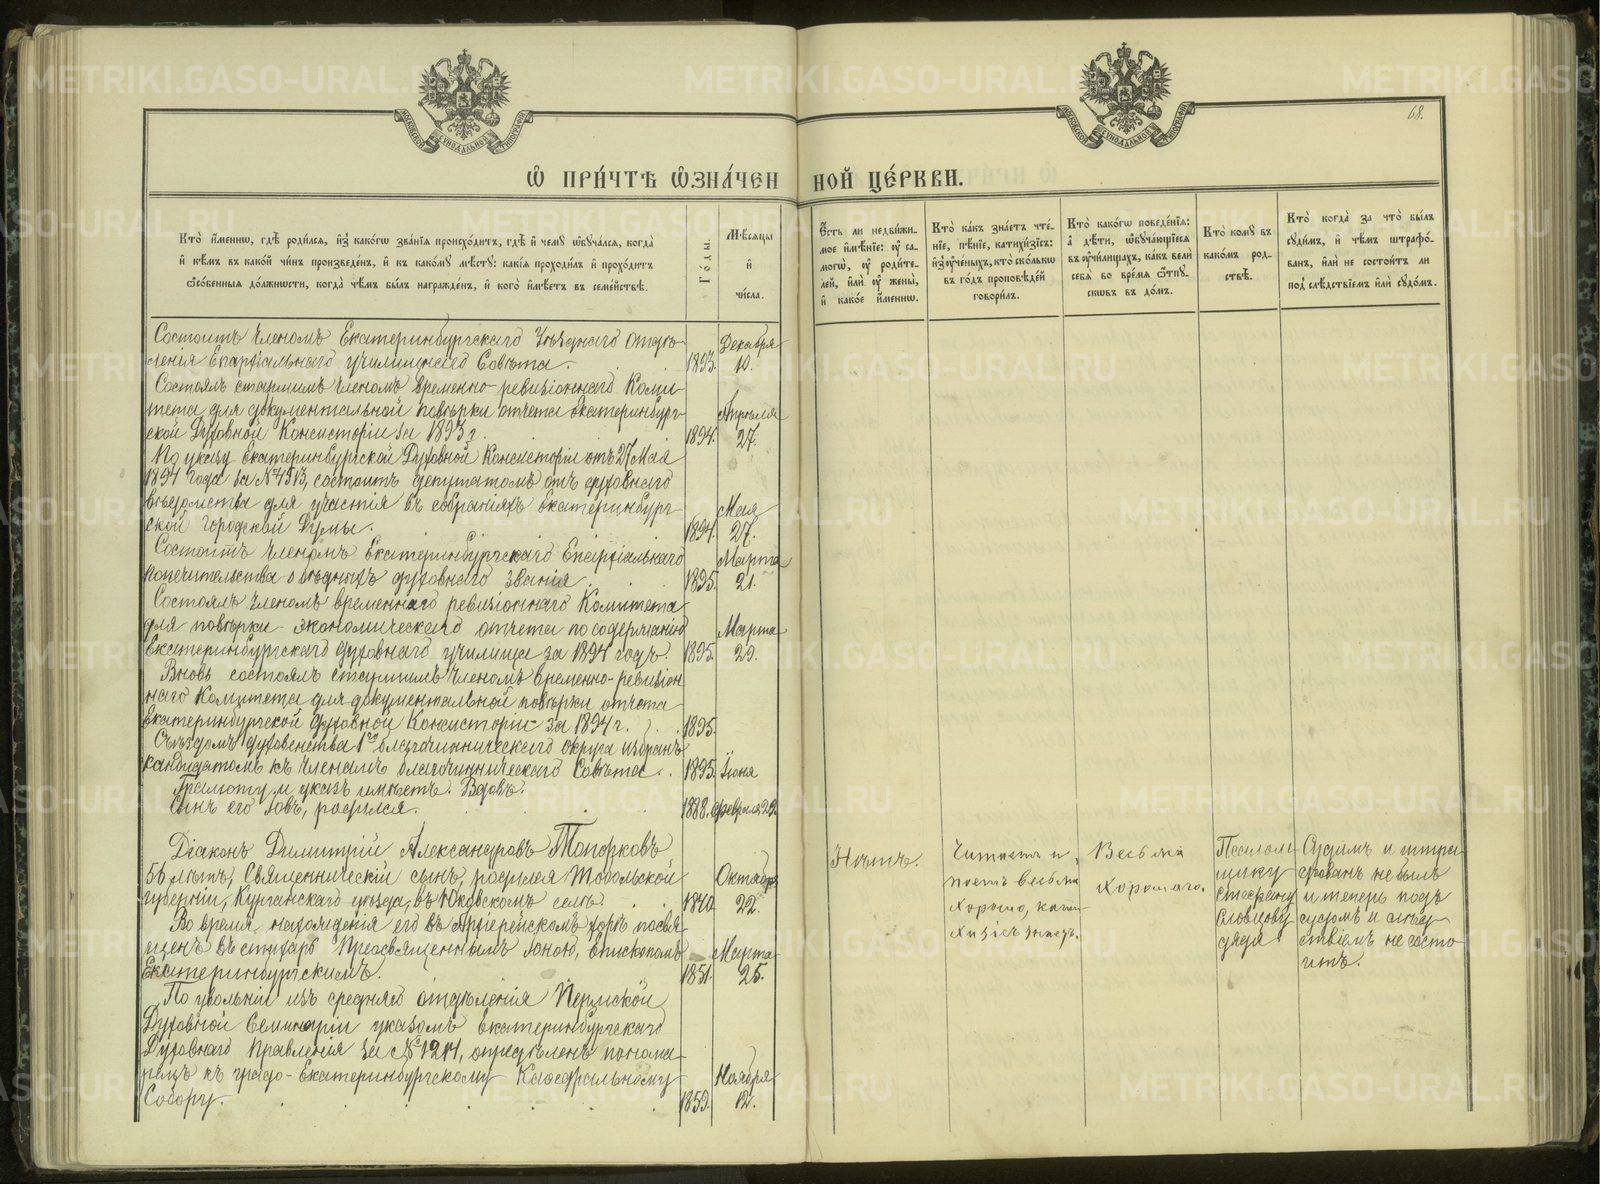 68.
Ѡ ПРИ́ЧТѢ Ѡ҆ЗНА́ЧЕННОЙ ЦЕ́РКВИ.
Кто̀ и҆́меннѡ, гдѣ̀ роди́лсѧ, и҆з̾ како́гѡ зва́нїѧ происхо́дитъ, гдѣ̀ и҆ чемꙋ̀ ѡ҆бꙋча́лсѧ, когда̀
и҆ кѣ́мъ въ како́й чи́нъ произведе́нъ, и҆ къ како́мꙋ мѣ́стꙋ: какі́ѧ проходи́лъ и҆ прохо́дитъ
ѻ҆со́бенныѧ до́лжности, когда̀ чѣ́мъ бы́лъ награжде́нъ, и҆ кого̀ и҆мѣ́етъ въ семе́йствѣ.
Го́ды.
Мѣ́сѧцы
и҆
чи́сла.
Є҆́сть ли недви́жи-
мое и҆мѣ́нїе: ᲂу҆ са-
могѡ̀, ᲂу҆ роди́те-
лей, и҆лѝ ᲂу҆ жены̀,
и҆ како́е и҆́меннѡ.
Кто̀ ка́къ зна́етъ чте́-
нїе, пѣ́нїе, катихі́зїсъ:
и҆з̾ ᲂу҆че́ныхъ, кто̀ ско́лькѡ
въ го́дъ проповѣ́дей
говори́лъ.
Кто̀ како́гѡ поведе́нїѧ:
а҆ дѣ́ти, ѡ҆бꙋча́ющїесѧ
въ ᲂу҆чи́лищахъ, ка́къ велѝ
себѧ̀ во вре́мѧ ѿпꙋ-
скѡвъ въ до́мъ.
Кто̀ комꙋ̀ въ
како́мъ род-
ствѣ̀.
Кто̀ когда̀ за что̀ бы́лъ
сꙋди́мъ, и҆ чѣ́мъ штрафо́-
ванъ, и҆лѝ не состои́тъ ли
под̾ слѣ́дствїемъ и҆лѝ сꙋдо́мъ.
Состоитъ членомъ Екатеринбургскаго Уѣзднаго отдѣ-
ленія Епархіальнаго училищнаго Совѣта. 1893. Декабря 10.
Состоялъ старшимъ членомъ Временно-ревизіоннаго Коми-
тета для документальной повѣрки отчета Екатеринбург-
ской Духовной Консисторіи за 1893 г. 1894. Апрѣля 27.
По указу Екатеринбургской Духовной Консисторіи отъ 27 Мая
1894 года за № 4513, состоитъ депутатомъ отъ духовнаго
вѣдомства для участія въ собраніяхъ Екатеринбург-
ской городской Думы. 1894. Мая 27.
Состоитъ членомъ Екатеринбургскаго Епархіальнаго
попечительства о бѣдныхъ духовнаго званія. 1895. Марта 21.
Состоялъ членомъ временнаго ревизіоннаго Комитета
для повѣрки экономическаго отчета по содержанію
Екатеринбургскаго духовнаго училища за 1894 годъ. 1895. Марта 29.
Вновь состоялъ старшимъ членомъ Временно-ревизіон
наго Комитета для документальной повѣрки отчета
Екатеринбургской духовной Консисторіи за 1894 г. 1895.
Съѣздомъ духовенства 1го благочинническаго округа избранъ
кандидатомъ къ членамъ благочинническаго Совѣта. 1895. Іюня
Грамоту и указъ имѣетъ. Вдовъ.
Сынъ его Левъ, родился. 1888. Февраля 22.
Діаконъ Димитрій Александровъ Топорковъ
56 лѣтъ, Священническій сынъ, родился Тобольской
губерніи, Курганскаго уѣзда, въ Юковскомъ селѣ. 1840. Октября 22.
Во время нахожденія его въ Архіерейскомъ хорѣ посвя-
щенъ въ стихарь Преосвященнымъ Іоною, Епископомъ
Екатеринбургскимъ. 1851. Марта 25.
По увольніи изъ средняго отдѣленія Пермской
Духовной Семинаріи указомъ Екатеринбургскаго
Духовнаго Правленія за № 1211, опредѣленъ понома-
ремъ къ градо-Екатеринбургскому Каѳедральному
Собору. 1859. Ноября 12.
Нѣтъ.
Читаетъ и
поетъ весьма
хорошо, кати-
хизисъ знаетъ.
Весьма
хорошаго.
Псалом-
щику
Стефану
Словцову
дядя
Судимъ и штра-
фованъ не былъ
и теперь подъ
судомъ и слѣд-
ствіемъ не состо-
итъ.
METRIKI.GASO-URAL.RU